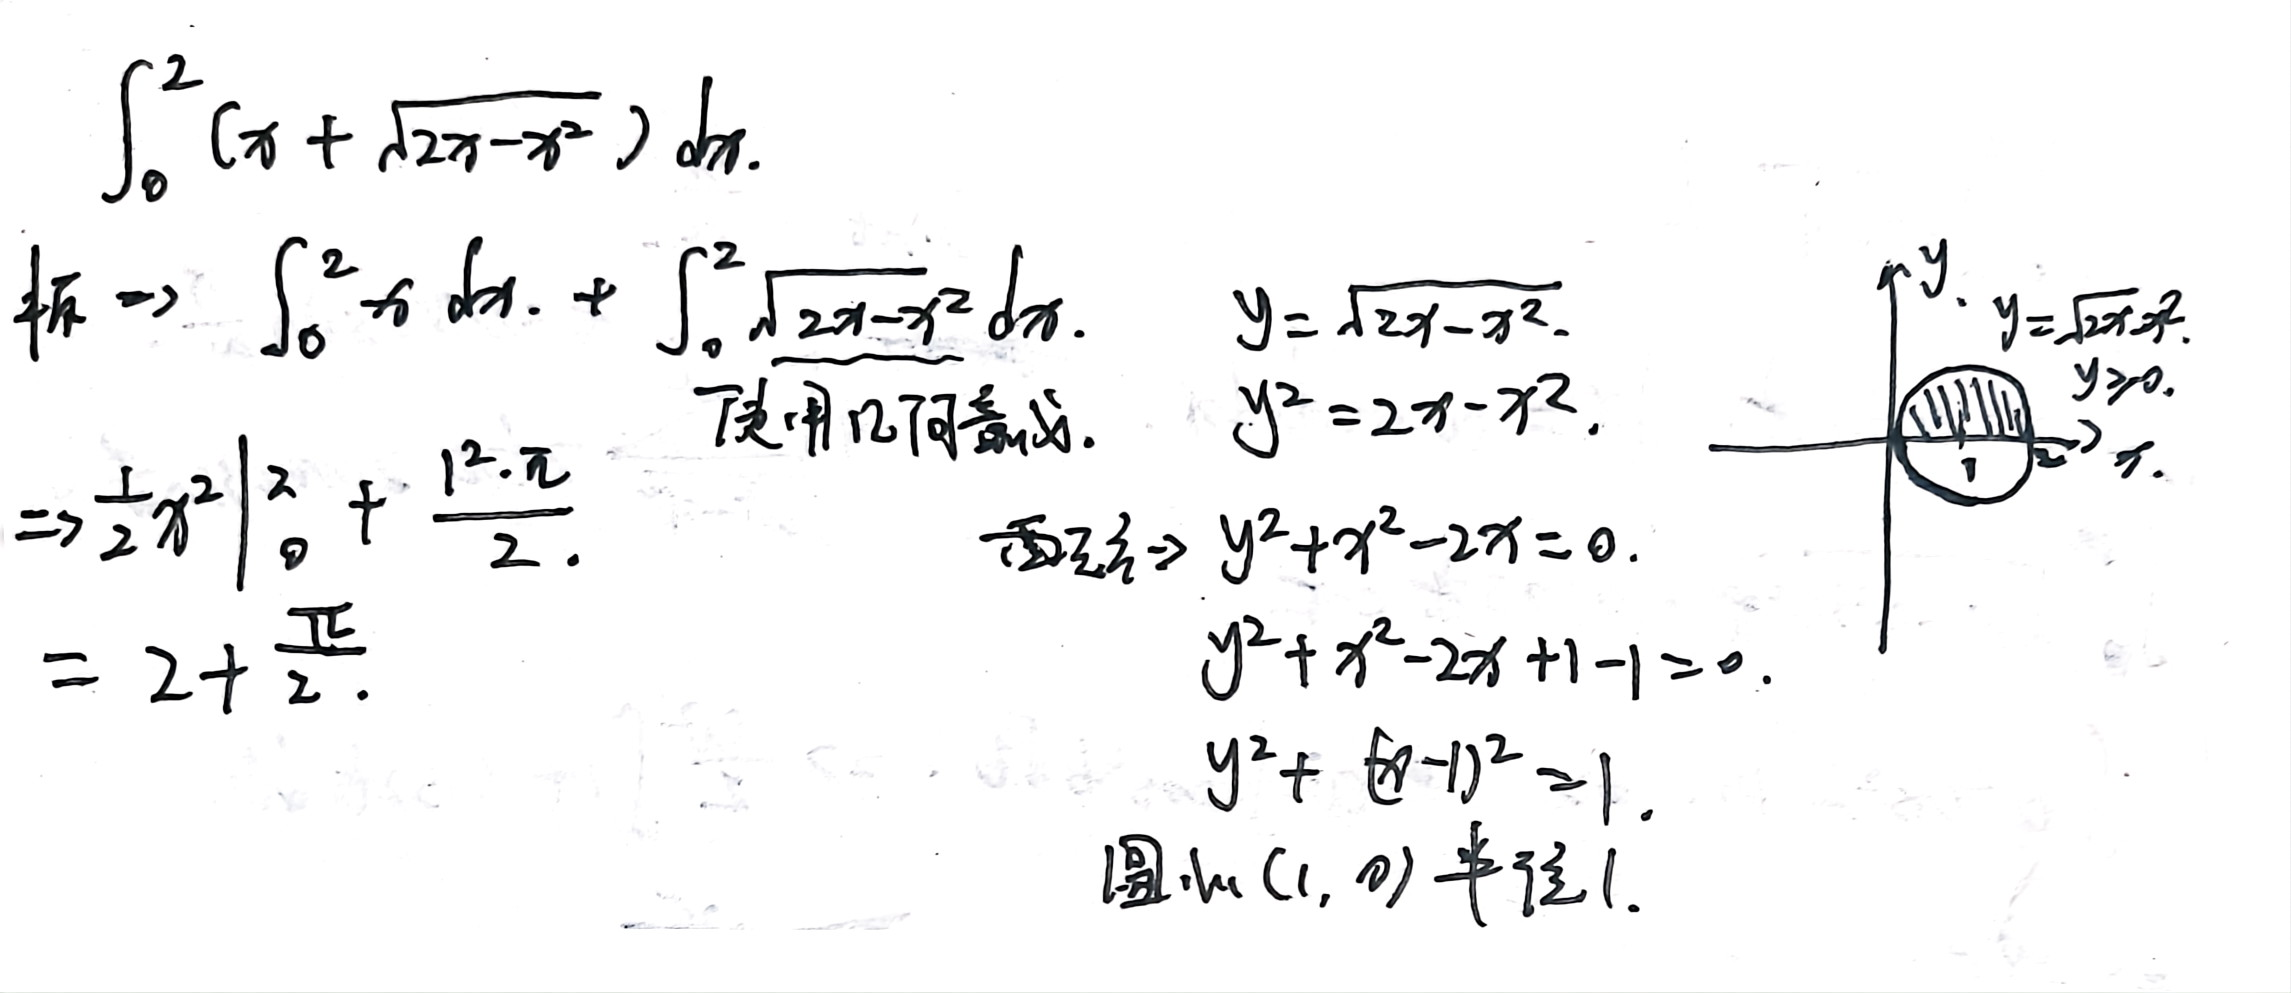 ∫₀² (x + √(2x-x²)) dx.
拆 => ∫₀² x dx. + ∫₀² √(2x-x²) dx.
使用几何意义.
=> 1/2 x² |₀² + 1²·π/2.
= 2 + π/2.
y = √(2x-x²).
y² = 2x-x².
配方 => y²+x²-2x=0.
y²+x²-2x+1-1=0.
y²+(x-1)²=1.
圆心(1,0)半径1.
y.
y=√(2x-x²).
y≥0.
1
2
x.